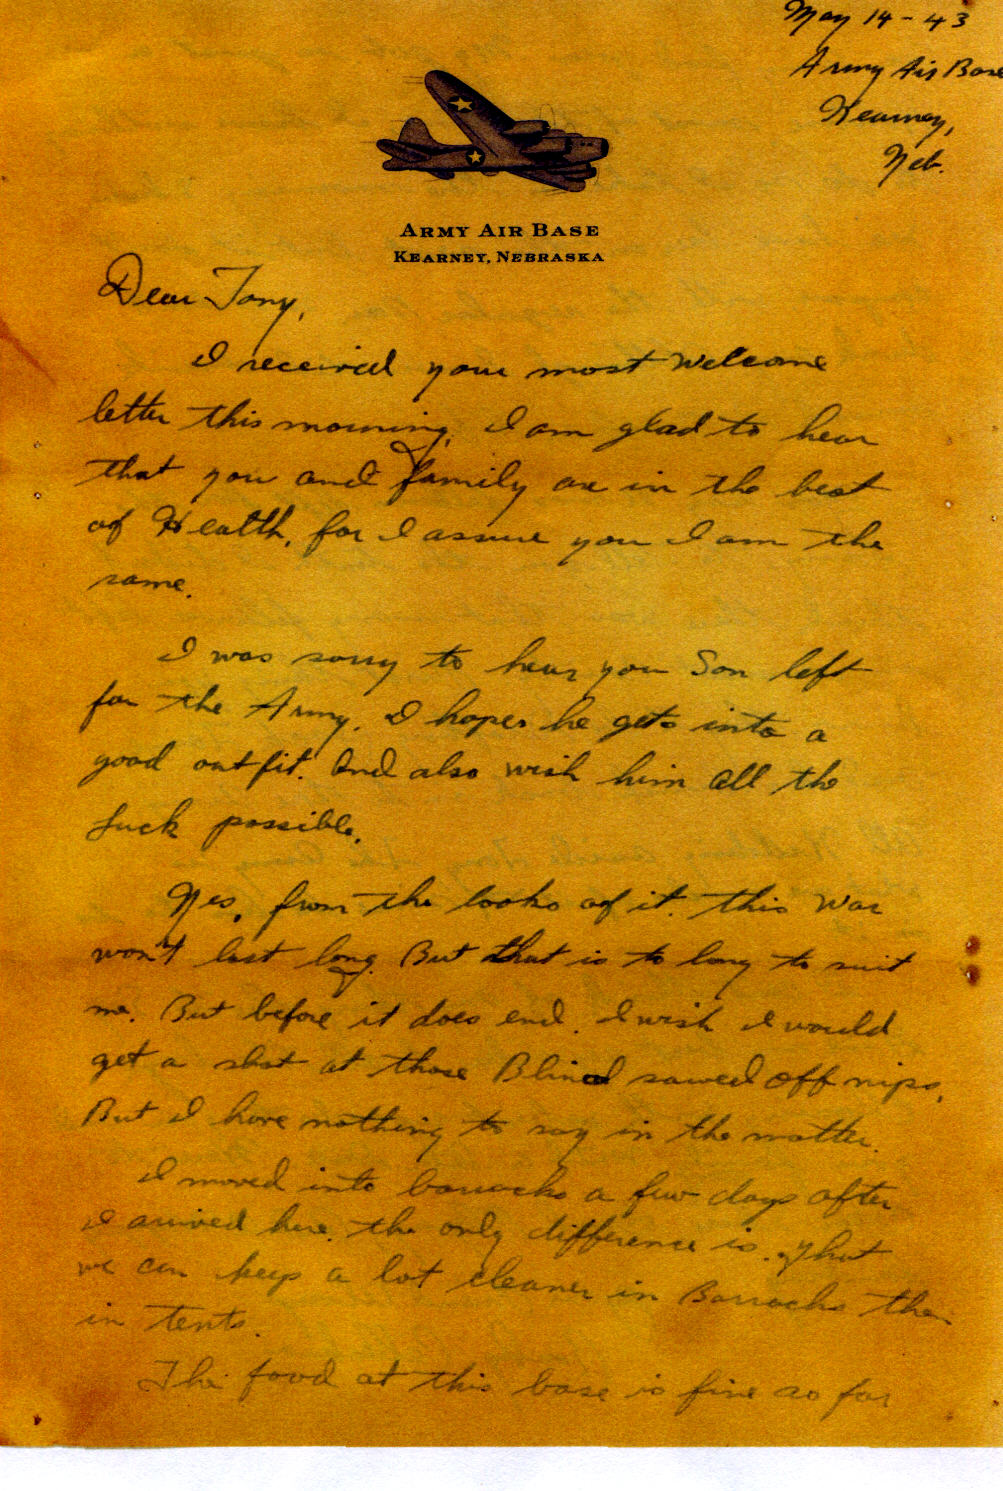 May 14-43
Army Air Base
Kearney,
Neb.
ARMY AIR BASE
KEARNEY, NEBRASKA
Dear Tony,
I received your most welcome
letter this morning, I am glad to hear
that you and family are in the best
of Health, for I assure you I am the
same.
I was sorry to hear you Son left
for the Army. I hopes he gets into a
good outfit. And also wish him all the
luck possible.
Yes, from the looks of it. this war
won't last long. But that is to long to suit
me. But before it does end. I wish I would
get a shot at those Blind sawed off nips.
But I have nothing to say in the matter.
I moved into barracks a few days after
I arived here. the only difference is. that
we can keep a lot cleaner in Barracks then
in tents.
The food at this base is fine so far